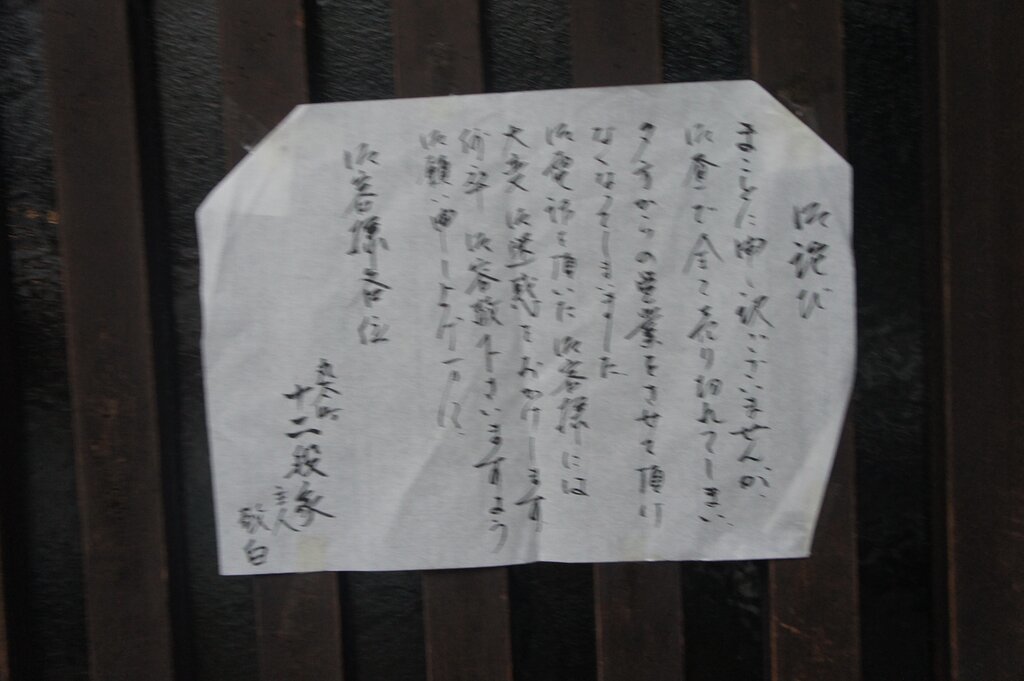 御詫び
まことに申し訳ございませんが、
御昼で全て売り切れてしまい、
夕方からの営業をさせて頂け
なくなってしまいました
御電話を頂いた御客様には
大変御迷惑をおかけします
何卒御容赦下さいますよう
御願い申し上げます。
御客様各位
丸太町
十二段家
主人
敬白